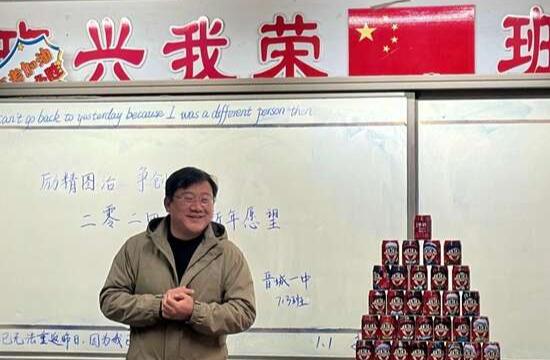 兴我荣 班
can't go back to yesterday because I was a different person then
励精图治 争创
二零二四 新年愿望
晋城一中
已无法重返昨日，因为我已 1.1